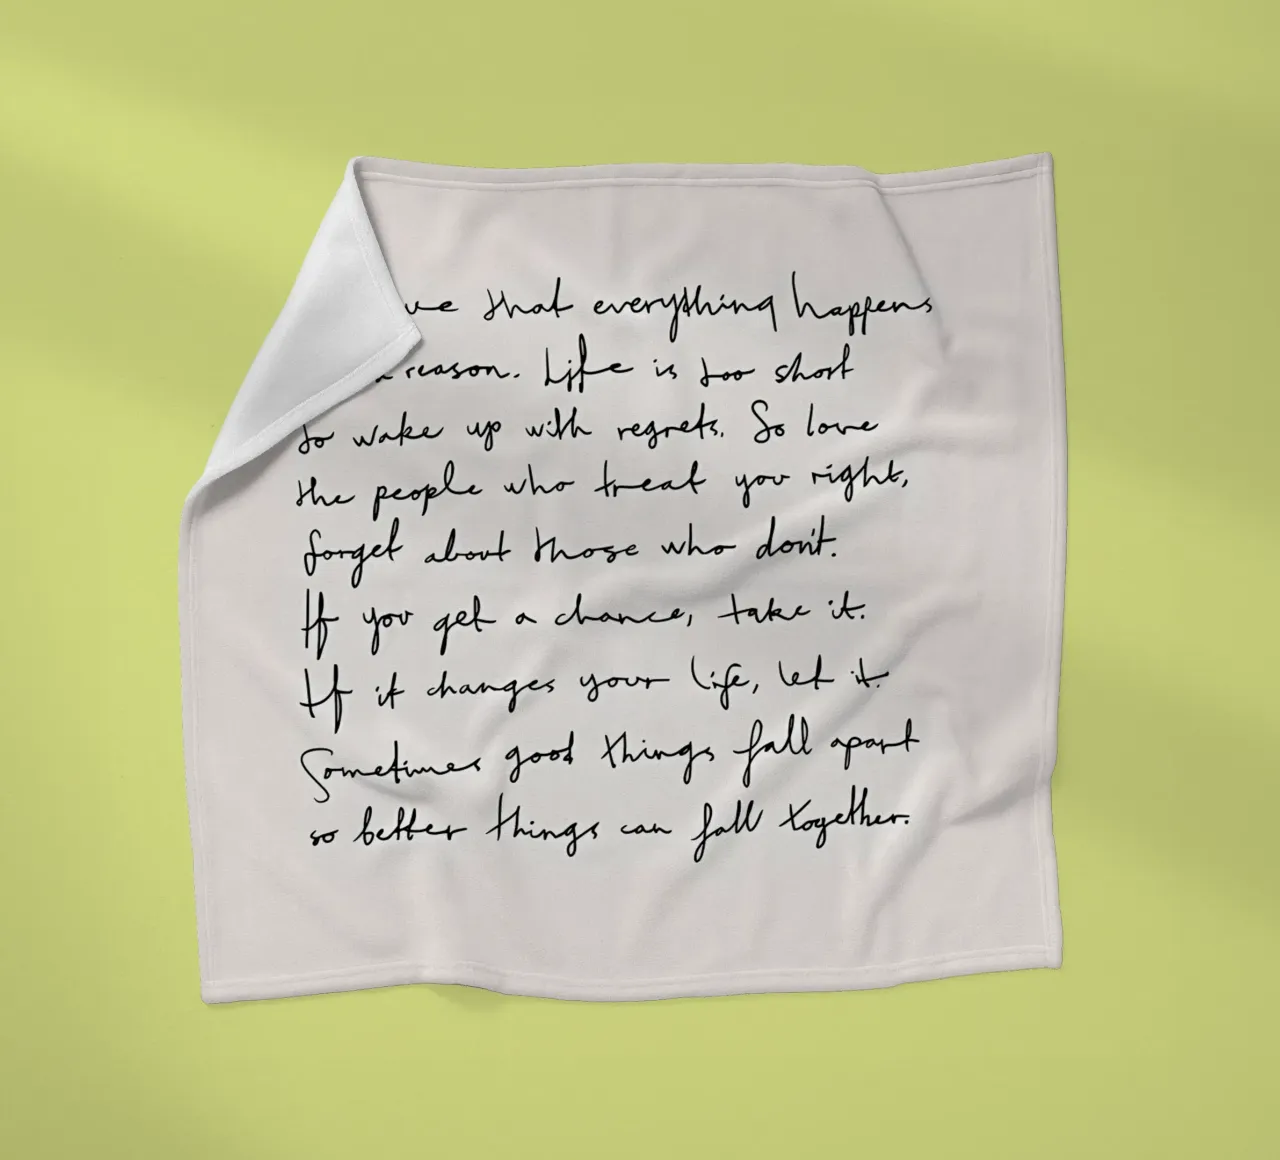 that everything happens
reason. Life is too short
to wake up with regrets. So love
the people who treat you right,
forget about those who don't.
If you get a chance, take it.
If it changes your life, let it.
Sometimes good things fall apart
so better things can fall together.